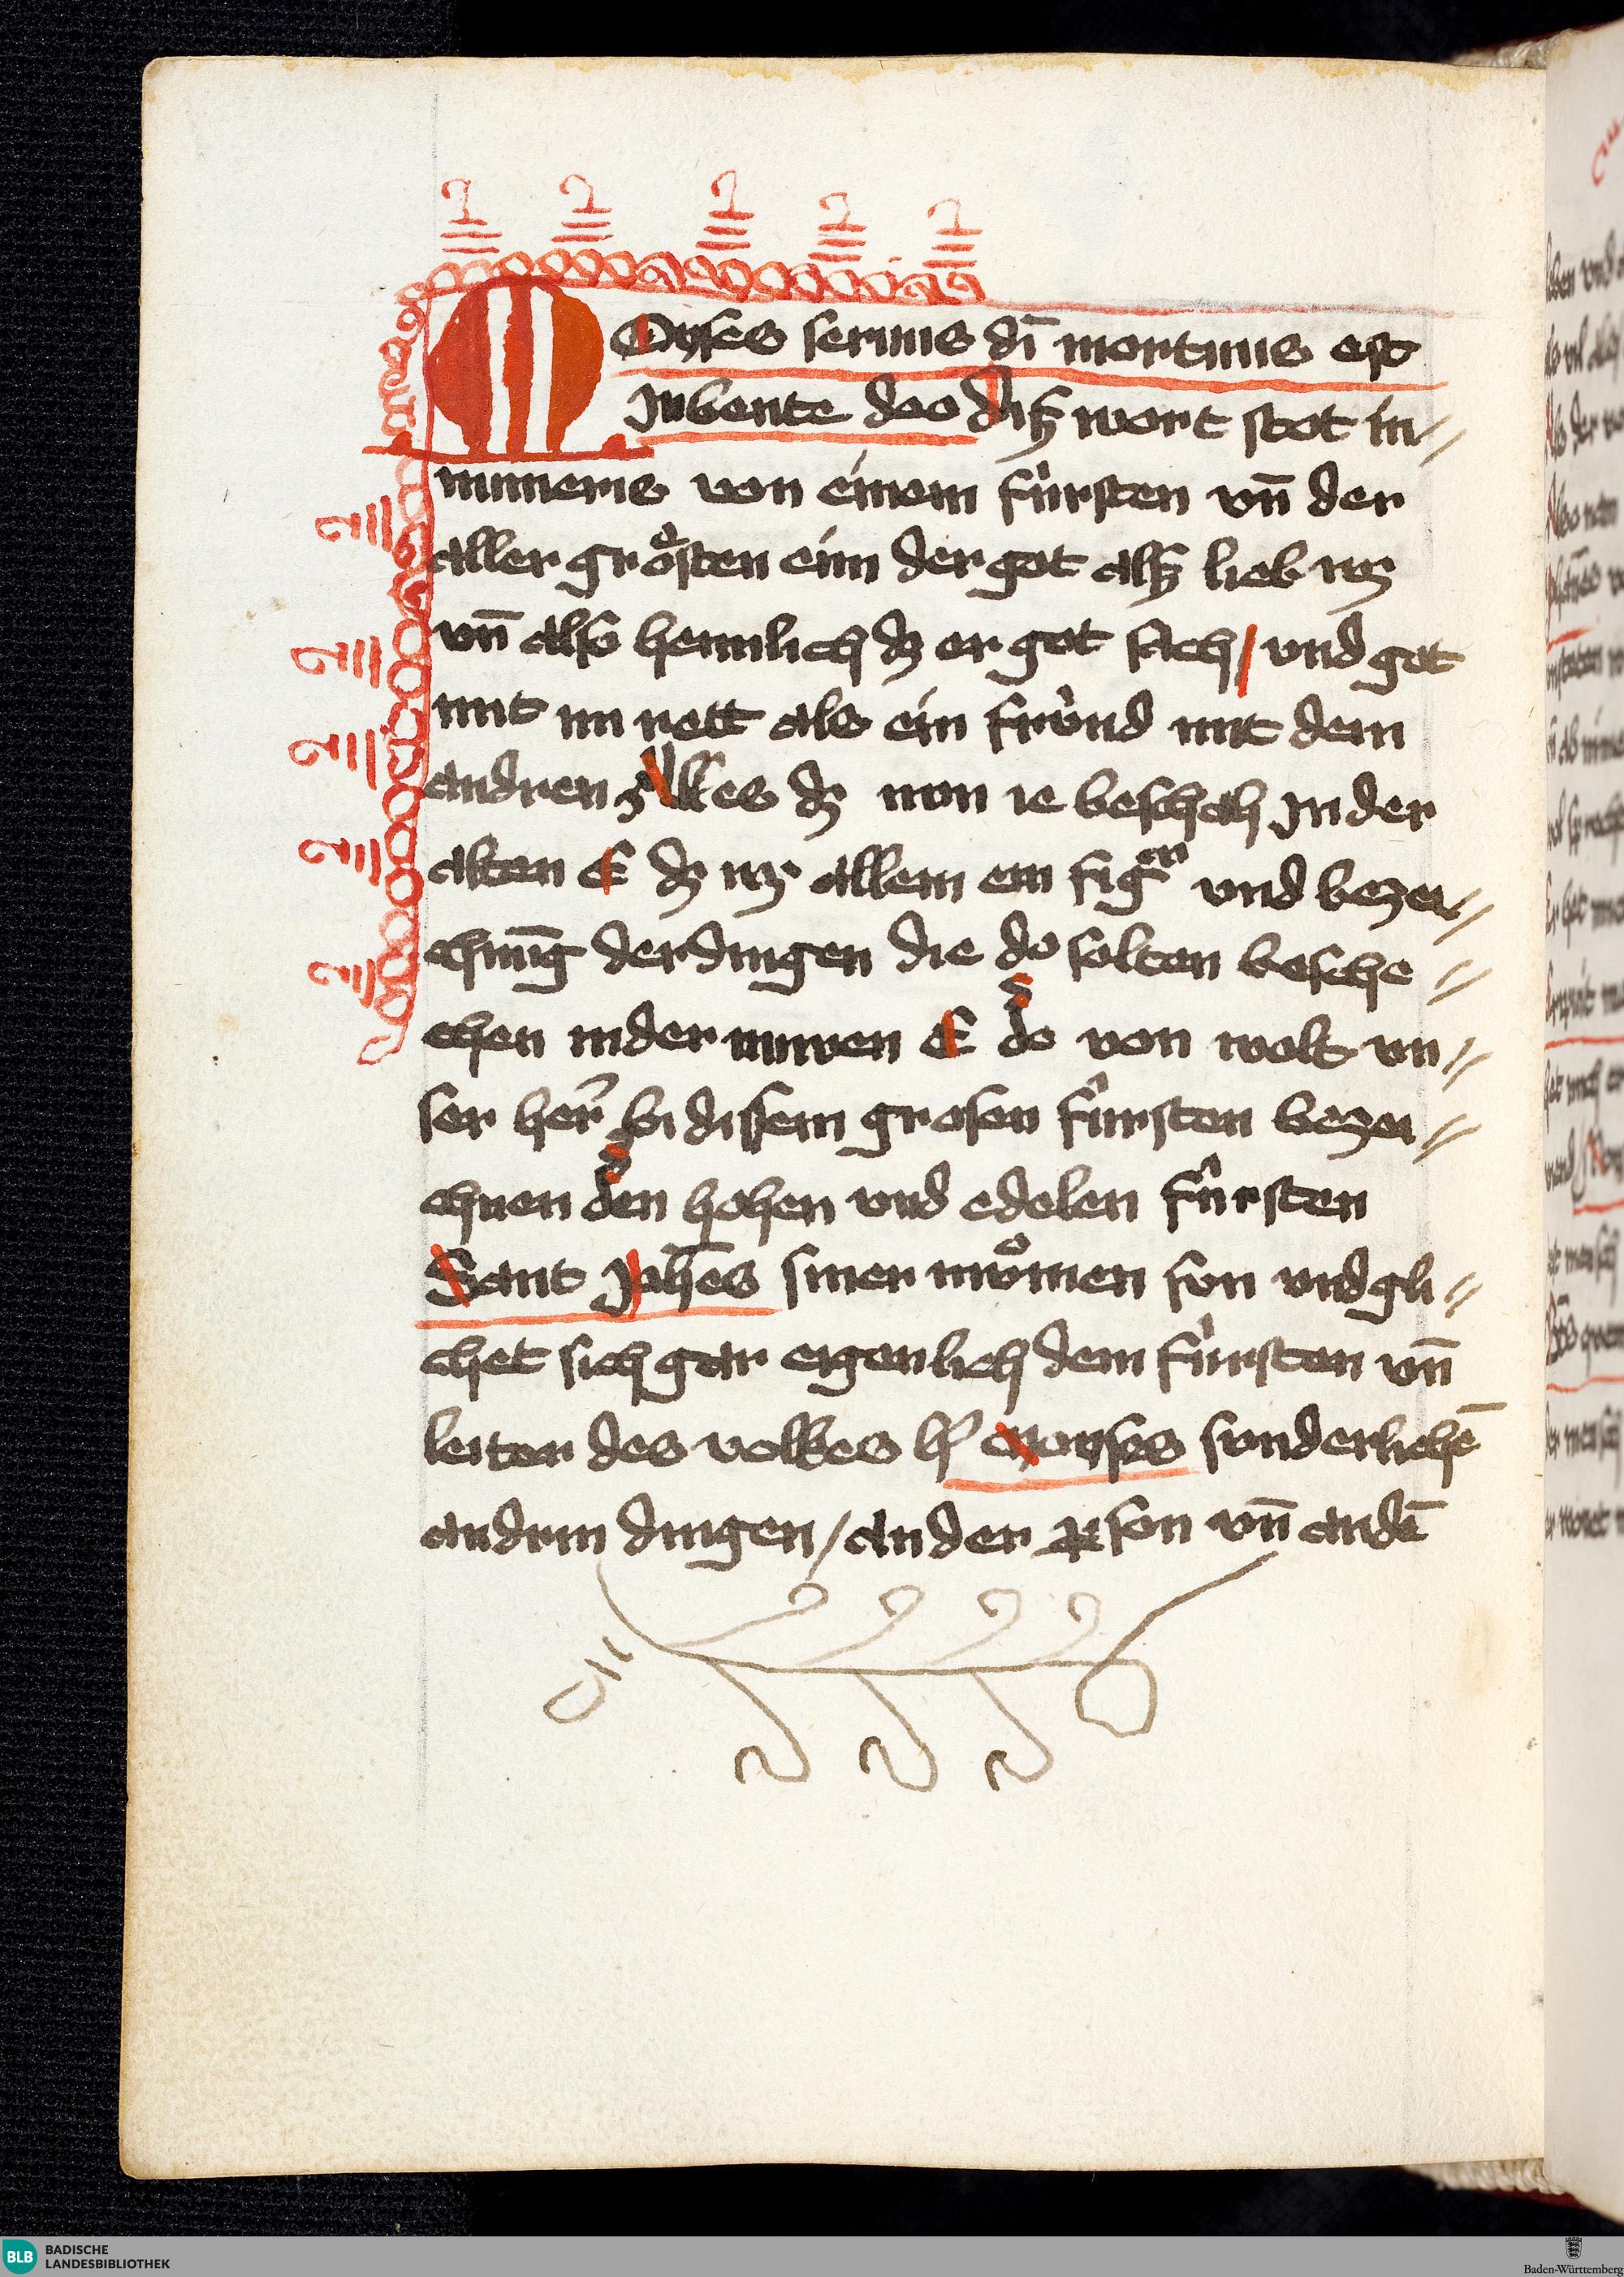 MOyses seruus dī mortuus est
Jubente deo Diſz wort stot in//
numeris von einem fúrsten vn̄ der
aller grösten eim der got alſz lieb wz
vn̄ also heimlich dz er got sach / und got
mit im rett als ein frúnd mit dem
andren Alles dz nun ie beschah Jn der
alten E dz wz allem ein fig^en und bezei//
chnūg der dingen die do solten besche//
chen in der nuwen E do von wolt vn//
ser her̄ bi disem grosen fúrsten bezei//
chnen den hohen vnd edelen fúrsten
Sant Joh̄es siner můmen son vnd gli//
chet sich gar eigenlich dem fúrsten vn̄
leiter des volkes h' Moyses sunderlichē
an drin dingen / an der ꝑson vn̄ an dē
BLB BADISCHE
LANDESBIBLIOTHEK
Baden-Württemberg